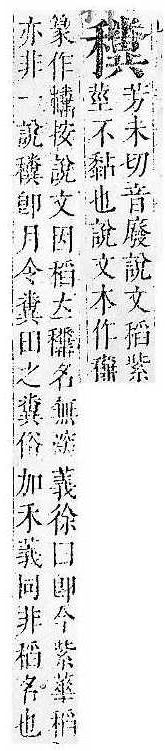 穖芳未切音廢說文稻紫
莖不黏也說文本作䆏
篆作𥢶按說文因稻大穬名無從義徐曰卽今紫華稻
亦非一說穖卽月令糞田之糞俗加禾義同非稻名也